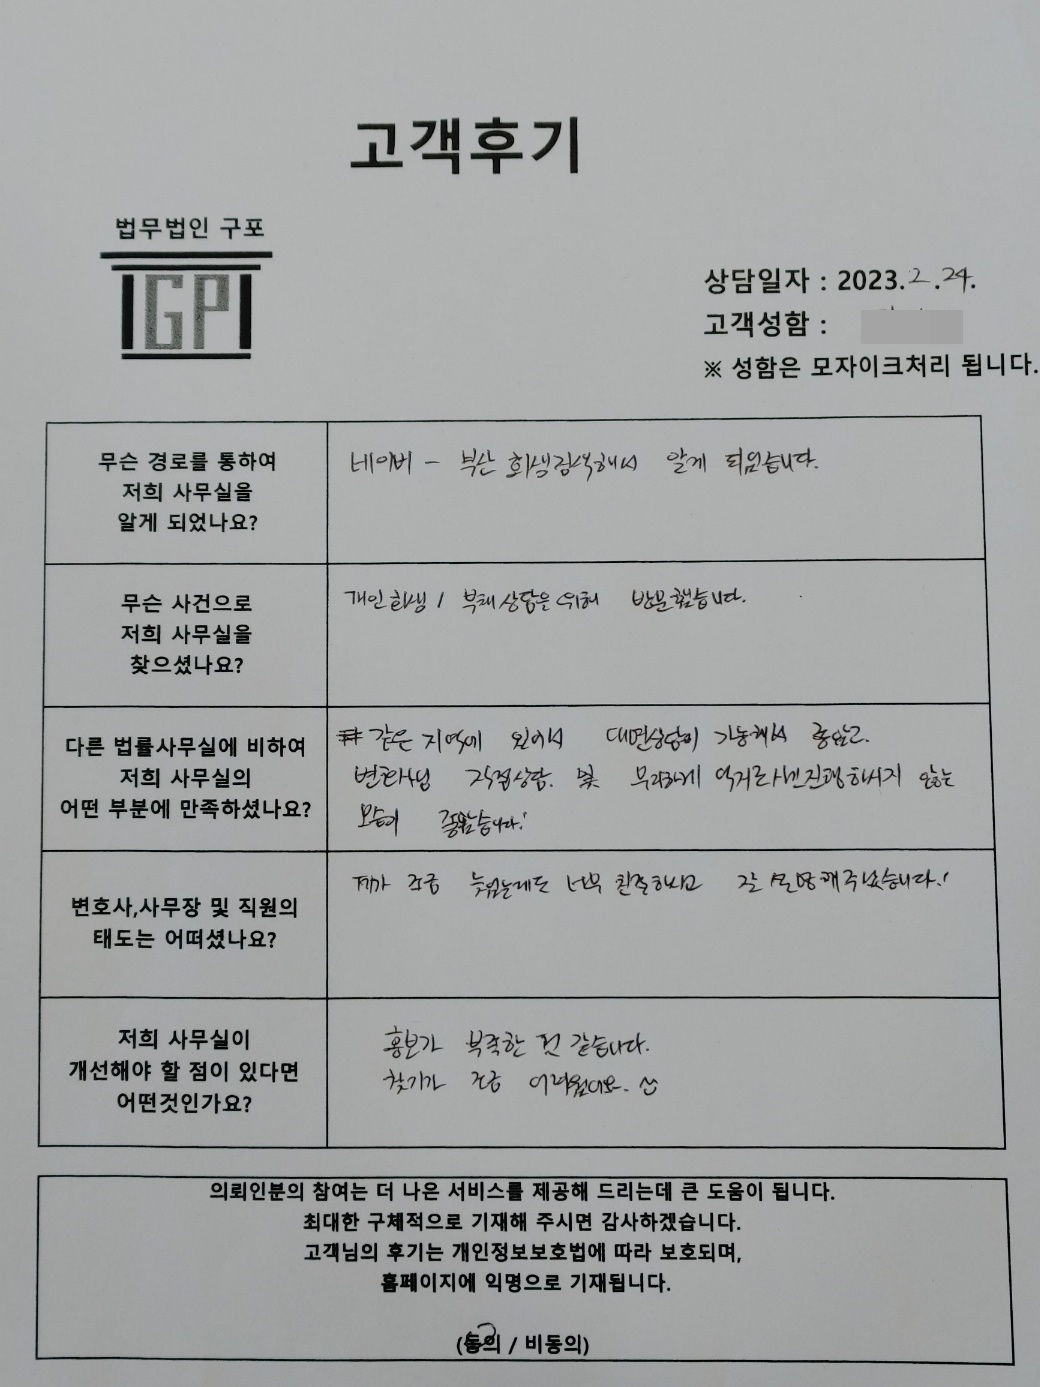 고객후기
법무법인 구포
GP
상담일자 : 2023.2.24.
고객성함 :
※ 성함은 모자이크처리 됩니다.
무슨 경로를 통하여
저희 사무실을
알게 되었나요?
네이버 - 부산 회생검색해서 알게 되었습니다.
무슨 사건으로
저희 사무실을
찾으셨나요?
개인회생 / 부채상담은 위해 방문했습니다.
다른 법률사무실에 비하여
저희 사무실의
어떤 부분에 만족하셨나요?
같은 지역에 있어서 대면상담이 가능해서 좋았고.
변호사님 직접상담. 및 무리하게 억지로 진행하시지 않는
모습이 좋았습니다!
변호사,사무장 및 직원의
태도는 어떠셨나요?
제가 조금 늦었는데도 너무 친절하시고 잘 설명해주셨습니다.!
저희 사무실이
개선해야 할 점이 있다면
어떤것인가요?
홍보가 부족한 것 같습니다.
찾기가 조금 어려웠어요.
의뢰인분의 참여는 더 나은 서비스를 제공해 드리는데 큰 도움이 됩니다.
최대한 구체적으로 기재해 주시면 감사하겠습니다.
고객님의 후기는 개인정보보호법에 따라 보호되며,
홈페이지에 익명으로 기재됩니다.
(동의 / 비동의)